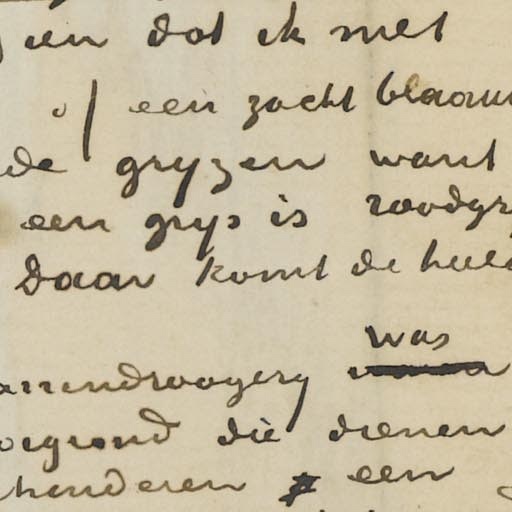 en dat ik met
of een zacht blaauw
de gryzen want
een grys is roodgr
daar komt de heele
was
arrendroogery
oorgrond die dienen
henderen een